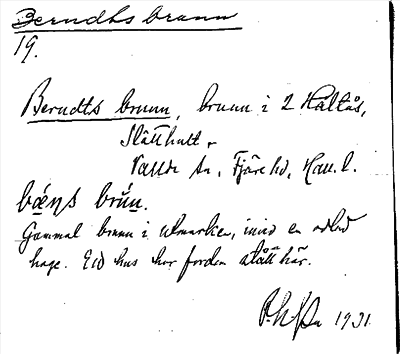 Berndts brunn
19.
Berndts brunn, brunn i 2 Håltås,
Slätthult
Vallda sn, Fjäre hd, Hall. l.
bæṇs brun.
Gammal brunn i utmarken, invid en
hage. Ett hus har fordom stått här.
1931.